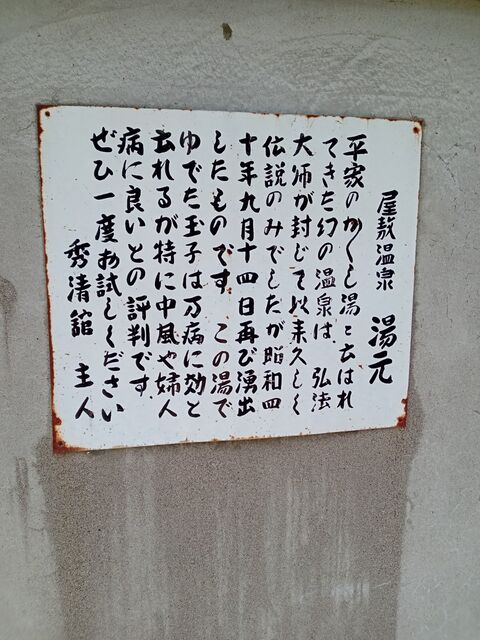 屋敷温泉 湯元
平家のかくし湯と云はれ
てきた幻の温泉は、弘法
大師が封じて以来久しく
伝説のみでしたが昭和四
十年九月十四日再び湧出
したものです。この湯で
ゆでた玉子は万病に効と
云れるが特に中風や婦人
病に良いとの評判です。
ぜひ一度お試しください
秀清館 主人